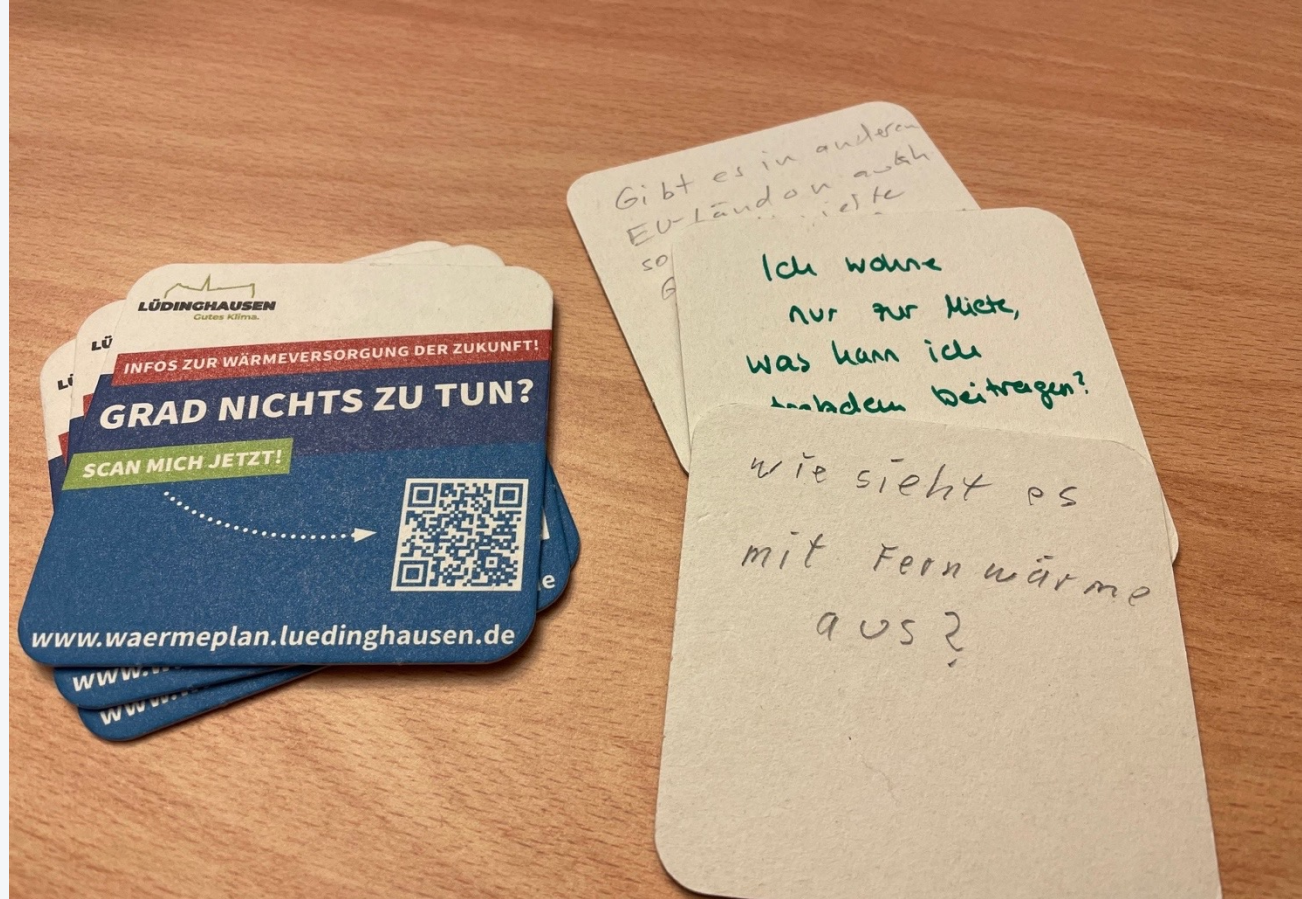 LÜDINGHAUSEN
Gutes Klima.
INFOS ZUR WÄRMEVERSORGUNG DER ZUKUNFT!
GRAD NICHTS ZU TUN?
SCAN MICH JETZT!
www.waermeplan.luedinghausen.de
LÜ
LÜ
e
www.w
www.w
Gibt es in anderen
EU-Ländon
so
G
Ich wohne
nur zur Miete,
was kann ich
trotzdem beitragen?
wie sieht es
mit Fernwärme
aus?